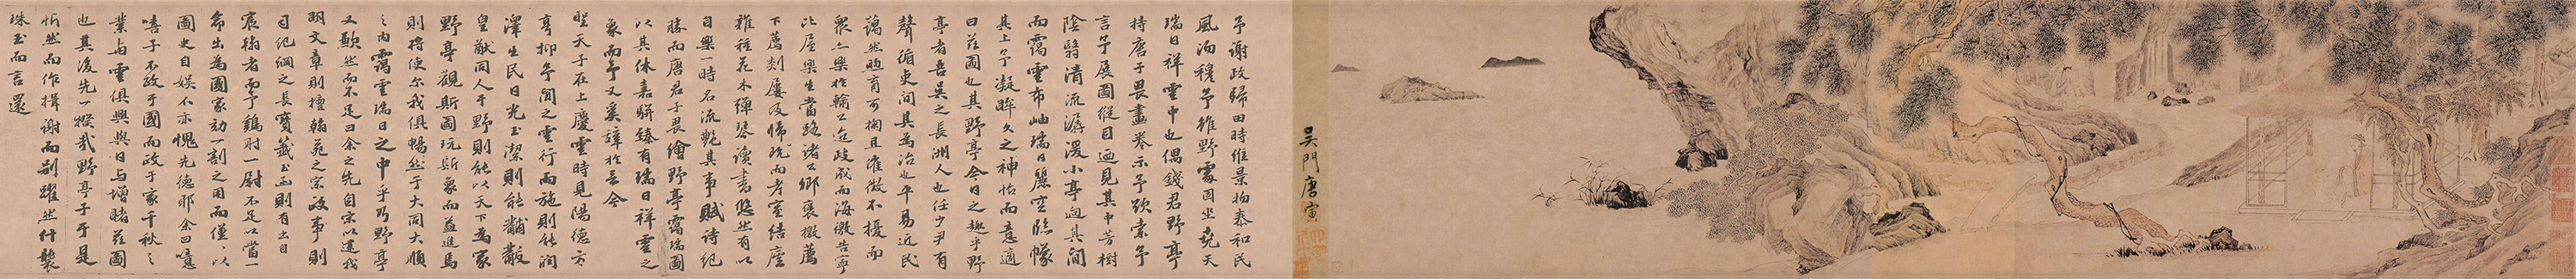 吳門唐寅
予謝政歸田時維景物泰和民
風洒穆予維野處固坐堯天
瑞日祥雲中也偶錢君野亭
持唐子畏畫卷示予欵索予
言予展圖縱目迺見其中芳樹
陰翳清流潺湲小亭迥其間
而靄雲布岫瑞日麗空臨幪
其上予凝眸久之神怡而意適
曰茲圖也其野亭今日之趣乎野
亭者吾吳之長洲人也任少尹有
聲循吏間其為治也平易近民
藹然煦育可掬且廉儆不擾而
衆亦樂於輸工迨政成而海徼告寧
比屋樂生當路諸公鄉褒檄薦
下薦剡屢及歸而考室結廬
雜花木彈琴讀書悠然有以
自樂一時名流艷其事賦詩紀
勝而唐君子畏繪野亭靄瑞圖
以其休嘉駢臻有瑞日祥雲之
象而予又奚辭於言今
聖天子在上慶雲時見陽德方
亨抑予聞之雲行雨施則能潤
澤生民日光玉潔則能黼黻
皇猷同人于野則能以天下為家
野亭觀斯圖玩斯象而益進焉
則將使尔我俱暢然于大同大順
之內靄雲瑞日之中乎乃野亭
又歉然而不足曰余之先自宋以逮我
明文章則擅翰苑之宗政事則
司紀綱之長寶籙玉函則有出自
宸翰者而予鷄肘一尉不足以當一
命出為國家効一割之用而僅以
圖史自娛不亦愧先德耶余曰噫
嘻子不政于國而政于家千秋之
業與雲俱興與日與增睹茲圖
也其後先一揆哉野亭子于是
忻然而作揖謝而别躍然什襲
珠玉而言還